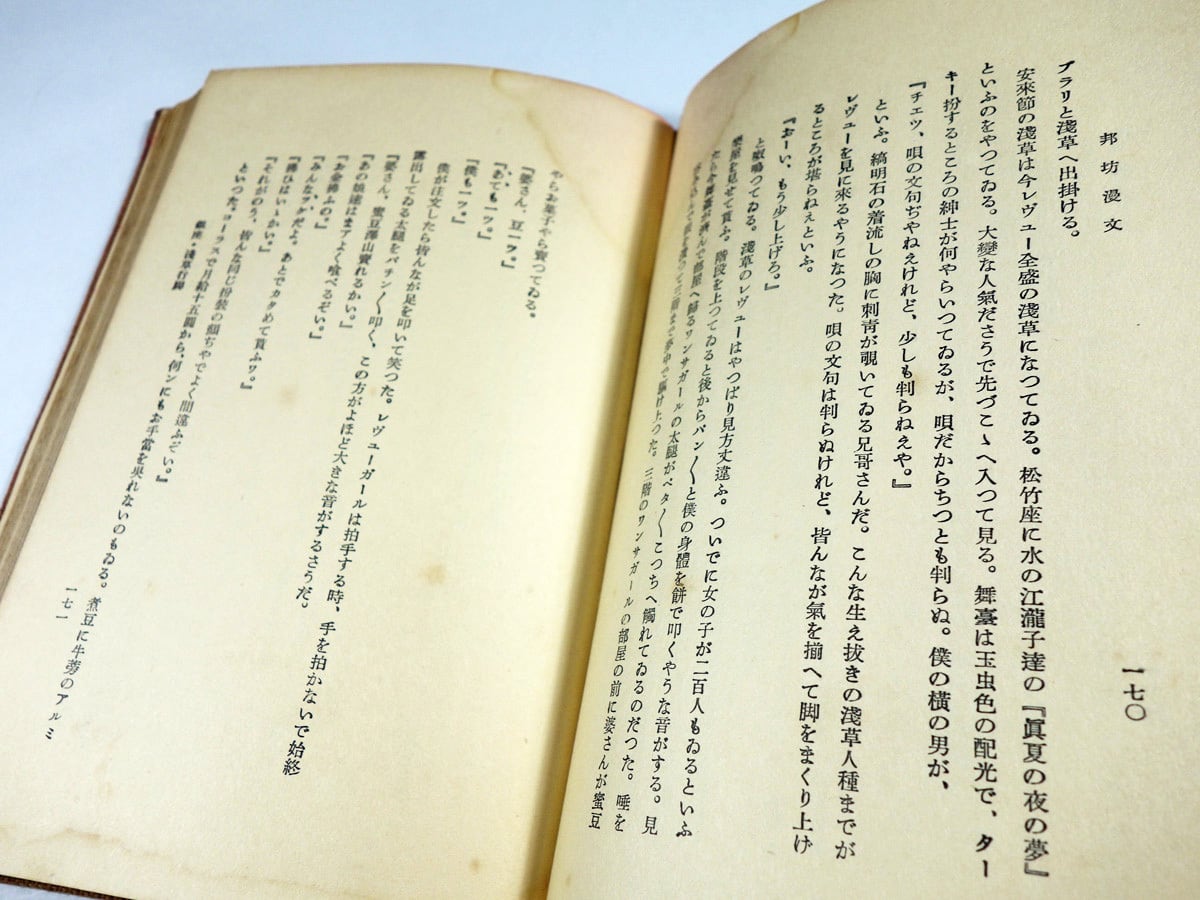 邦坊漫文
一七〇
ブラリと淺草へ出掛ける。
安來節の淺草は今レヴュー全盛の淺草になつてゐる。松竹座に水の江瀧子達の『眞夏の夜の夢』
といふのをやつてゐる。大變な人氣ださうで先づこゝへ入つて見る。舞臺は玉虫色の配光で、ター
キー扮するところの紳士が何やらいつてゐるが、唄だからちつとも判らぬ。僕の橫の男が、
『チェツ、唄の文句ぢやねえけれど、少しも判らねえや。』
といふ。縞明石の着流しの胸に刺靑が覗いてゐる兄哥さんだ。こんな生え拔きの淺草人種までが
レヴューを見に來るやうになつた。唄の文句は判らぬけれど、皆んなが氣を揃へて脚をまくり上げ
るところが堪らねえといふ。
『おーい、もう少し上げろ。』
と呶鳴つてゐる。淺草のレヴューはやつぱり見方丈違ふ。ついでに女の子が二百人もゐるといふ
樂屋を見せて貰ふ。階段を上つてゐると後からパン〳〵と僕の身體を餅で叩くやうな音がする。見
たら舞臺が濟んで部屋へ歸るワンサガールの太腿がペタ〳〵こつちへ觸れてゐるのだつた。唾を
三階まで夢中で驅け上つた。三階のワンサガールの部屋の前に婆さんが蜜豆
やらお菓子やら賣つてゐる。
『婆さん、豆一ツ。』
『あても一ツ。』
『僕も一ツ。』
僕が注文したら皆んなが足を叩いて笑つた。レヴューガールは拍手する時、手を拍かないで始終
露出してゐる太腿をパチン〳〵叩く、この方がよほど大きな音がするさうだ。
『婆さん、蜜豆澤山賣れるかい。』
『あの娘達はまアよく喰べるぞい。』
『お金拂ふの。』
『みんなツケだよ。あとでカタめて貰ふワ。』
『拂ひはいゝかい。』
『それがのう、皆んな同じ扮裝の顏ぢやでよく間違ふぞい。』
といつた。コーラスで月給十五圓から、何ンにもお手當を吳れないのもゐる。煮豆に牛蒡のアルミ
銀座・淺草行脚
一七一